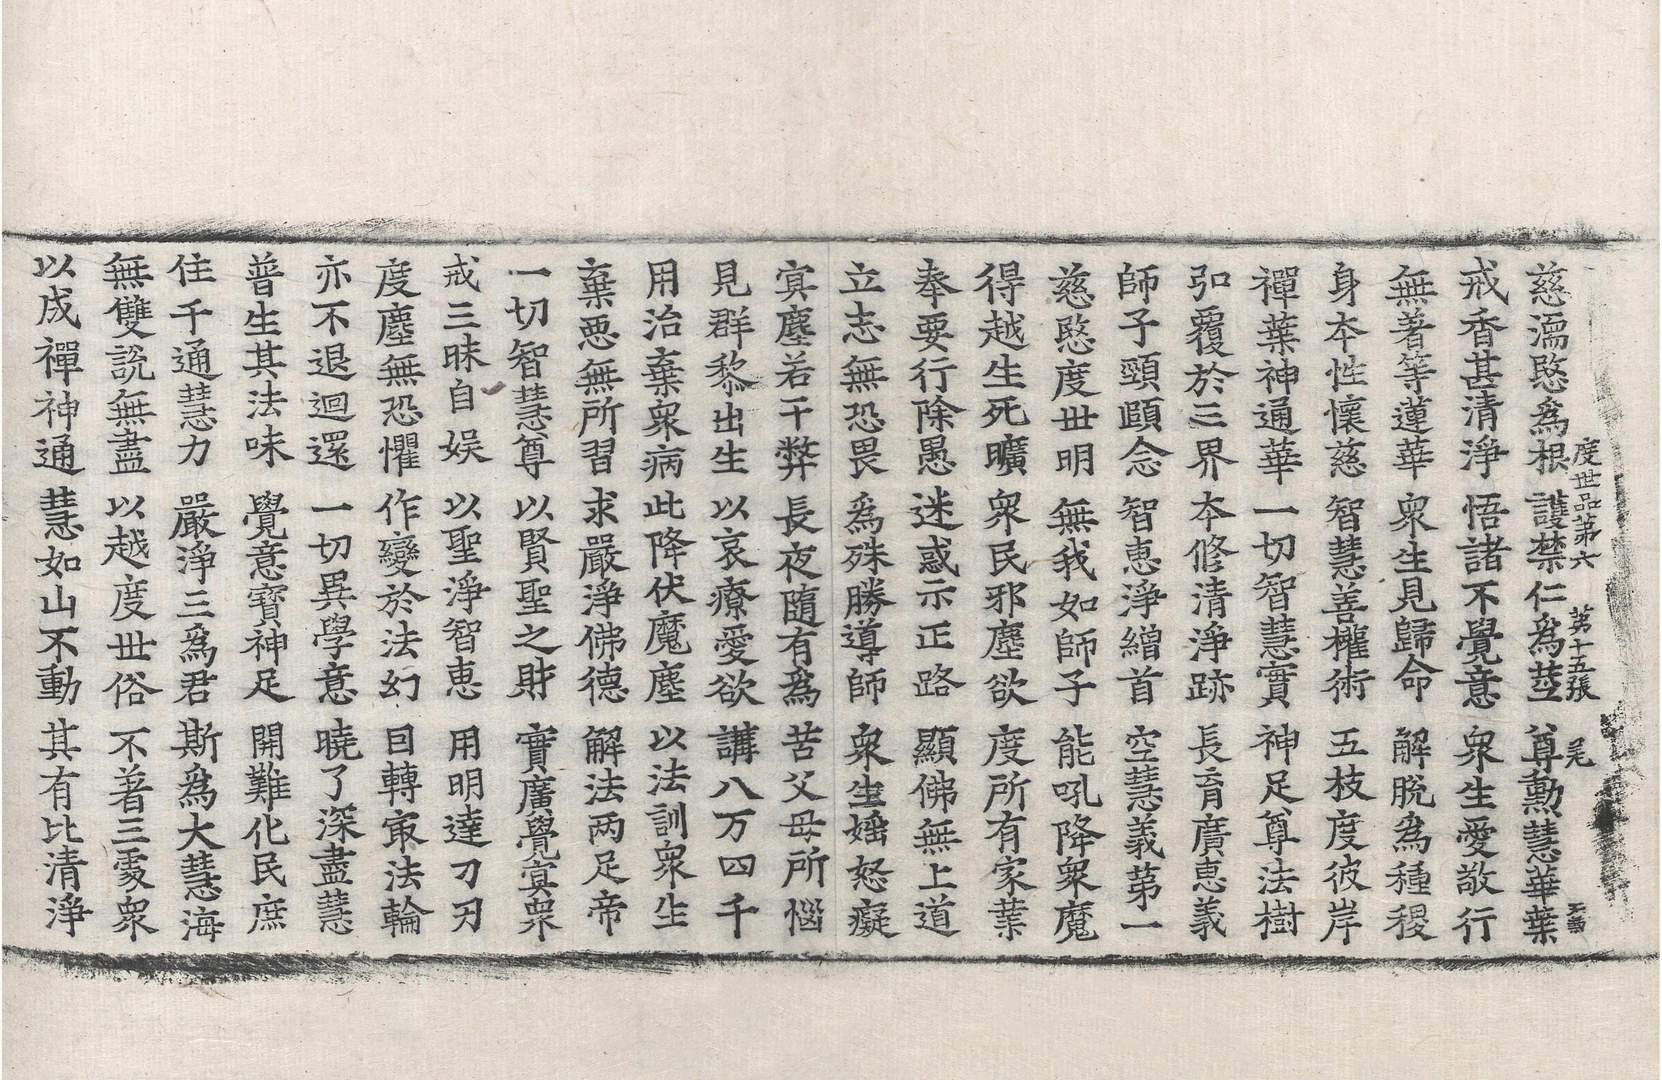 度世品第六　第十五張　尾
慈濡愍為根　護禁仁為莖　尊勳慧華葉
戒香甚清淨　悟諸不覺意　衆生愛敬行
無著等蓮華　衆生見歸命　解脫為種稷
身本性懷慈　智慧善權術　五枝度彼岸
禪葉神通華　一切智慧實　神足尊法樹
弘覆於三界　本修清淨跡　長育廣恵義
師子頸頤念　智恵淨繒首　空慧義第一
慈愍度世明　無我如師子　能吼降衆魔
得越生死曠　衆民邪塵欲　度所有家業
奉要行除愚　迷惑示正路　顯佛無上道
立志無恐畏　為殊勝導師　衆生婬怒癡
冥塵若干弊　長夜隨有為　苦父母所惱
見群黎出生　以哀療愛欲　講八万四千
用治棄衆病　此降伏魔塵　以法訓衆生
棄惡無所習　求嚴淨佛德　解法两足帝
一切智慧尊　以賢聖之財　寶廣覺冥衆
戒三昧自娱　以聖淨智恵　用明達刀刃
度塵無恐懼　作變於法幻　曰轉㝡法輪
亦不退迴還　一切異學意　曉了深盡慧
普生其法味　覺意寶神足　開難化民庶
住千通慧力　嚴淨三為君　斯為大慧海
無雙說無盡　以越度世俗　不著三處衆
以成禪神通　慧如山不動　其有比清淨